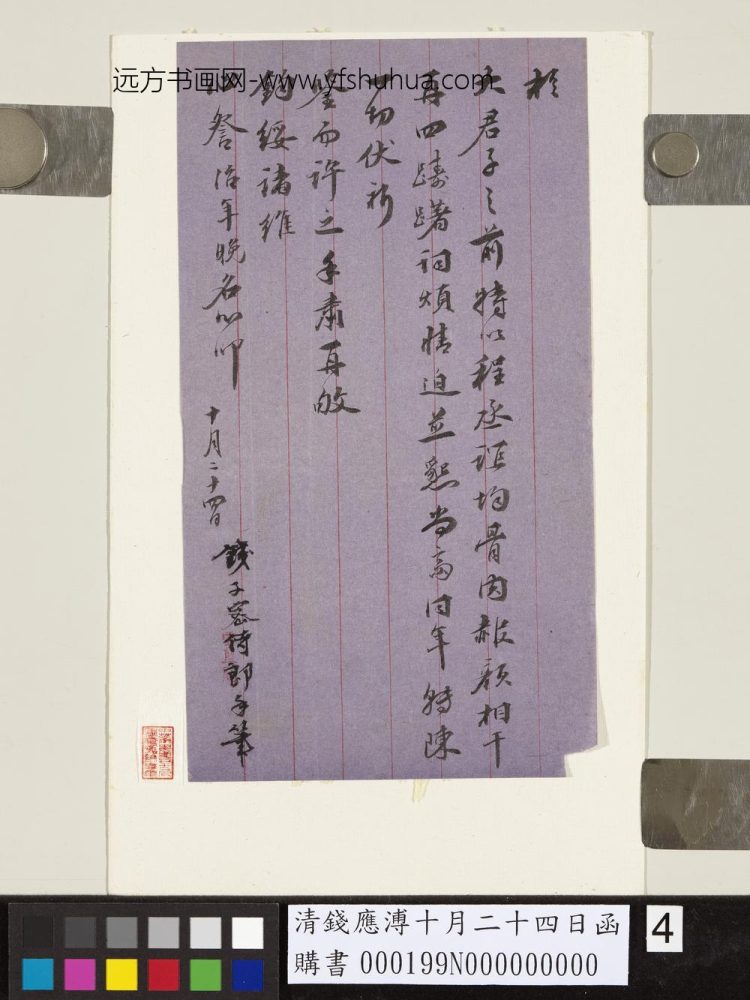 於
大君子之前特以程丞誼均骨肉赧顏相干
再四躊躇詞煩情迫並懇尚高同年特陳
切伏祈
鑒而許之手肅再敂
鈞綏諸維
詧 治年晚名心叩
十月二十四日
錢子密侍郎手筆
远方书画网-www.yfshuhua.com
清錢應溥十月二十四日函
購書 000199N000000000
4